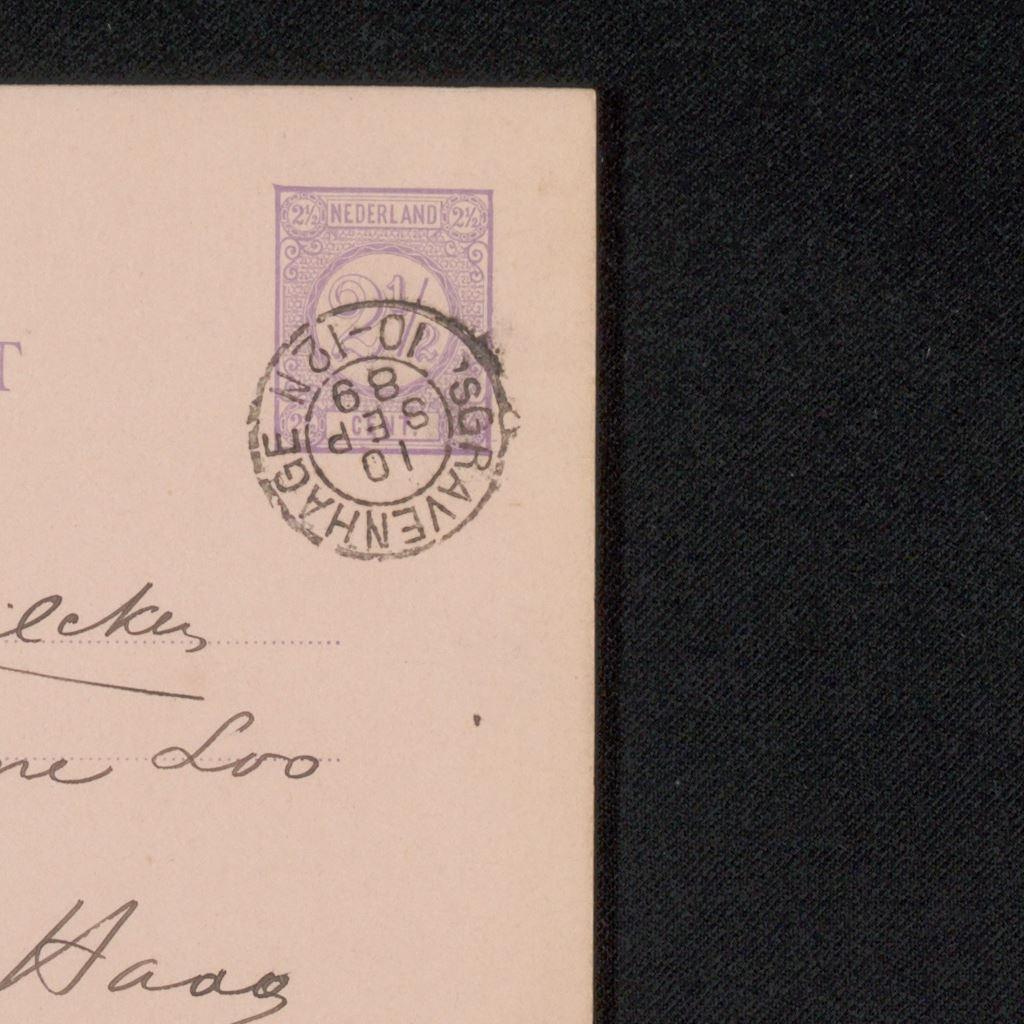 2½ NEDERLAND 2½
2½
CENT.
'SGRAVENHAGE
10
SEP
89
10-12 N
T
ilcken
ne Loo
Haag